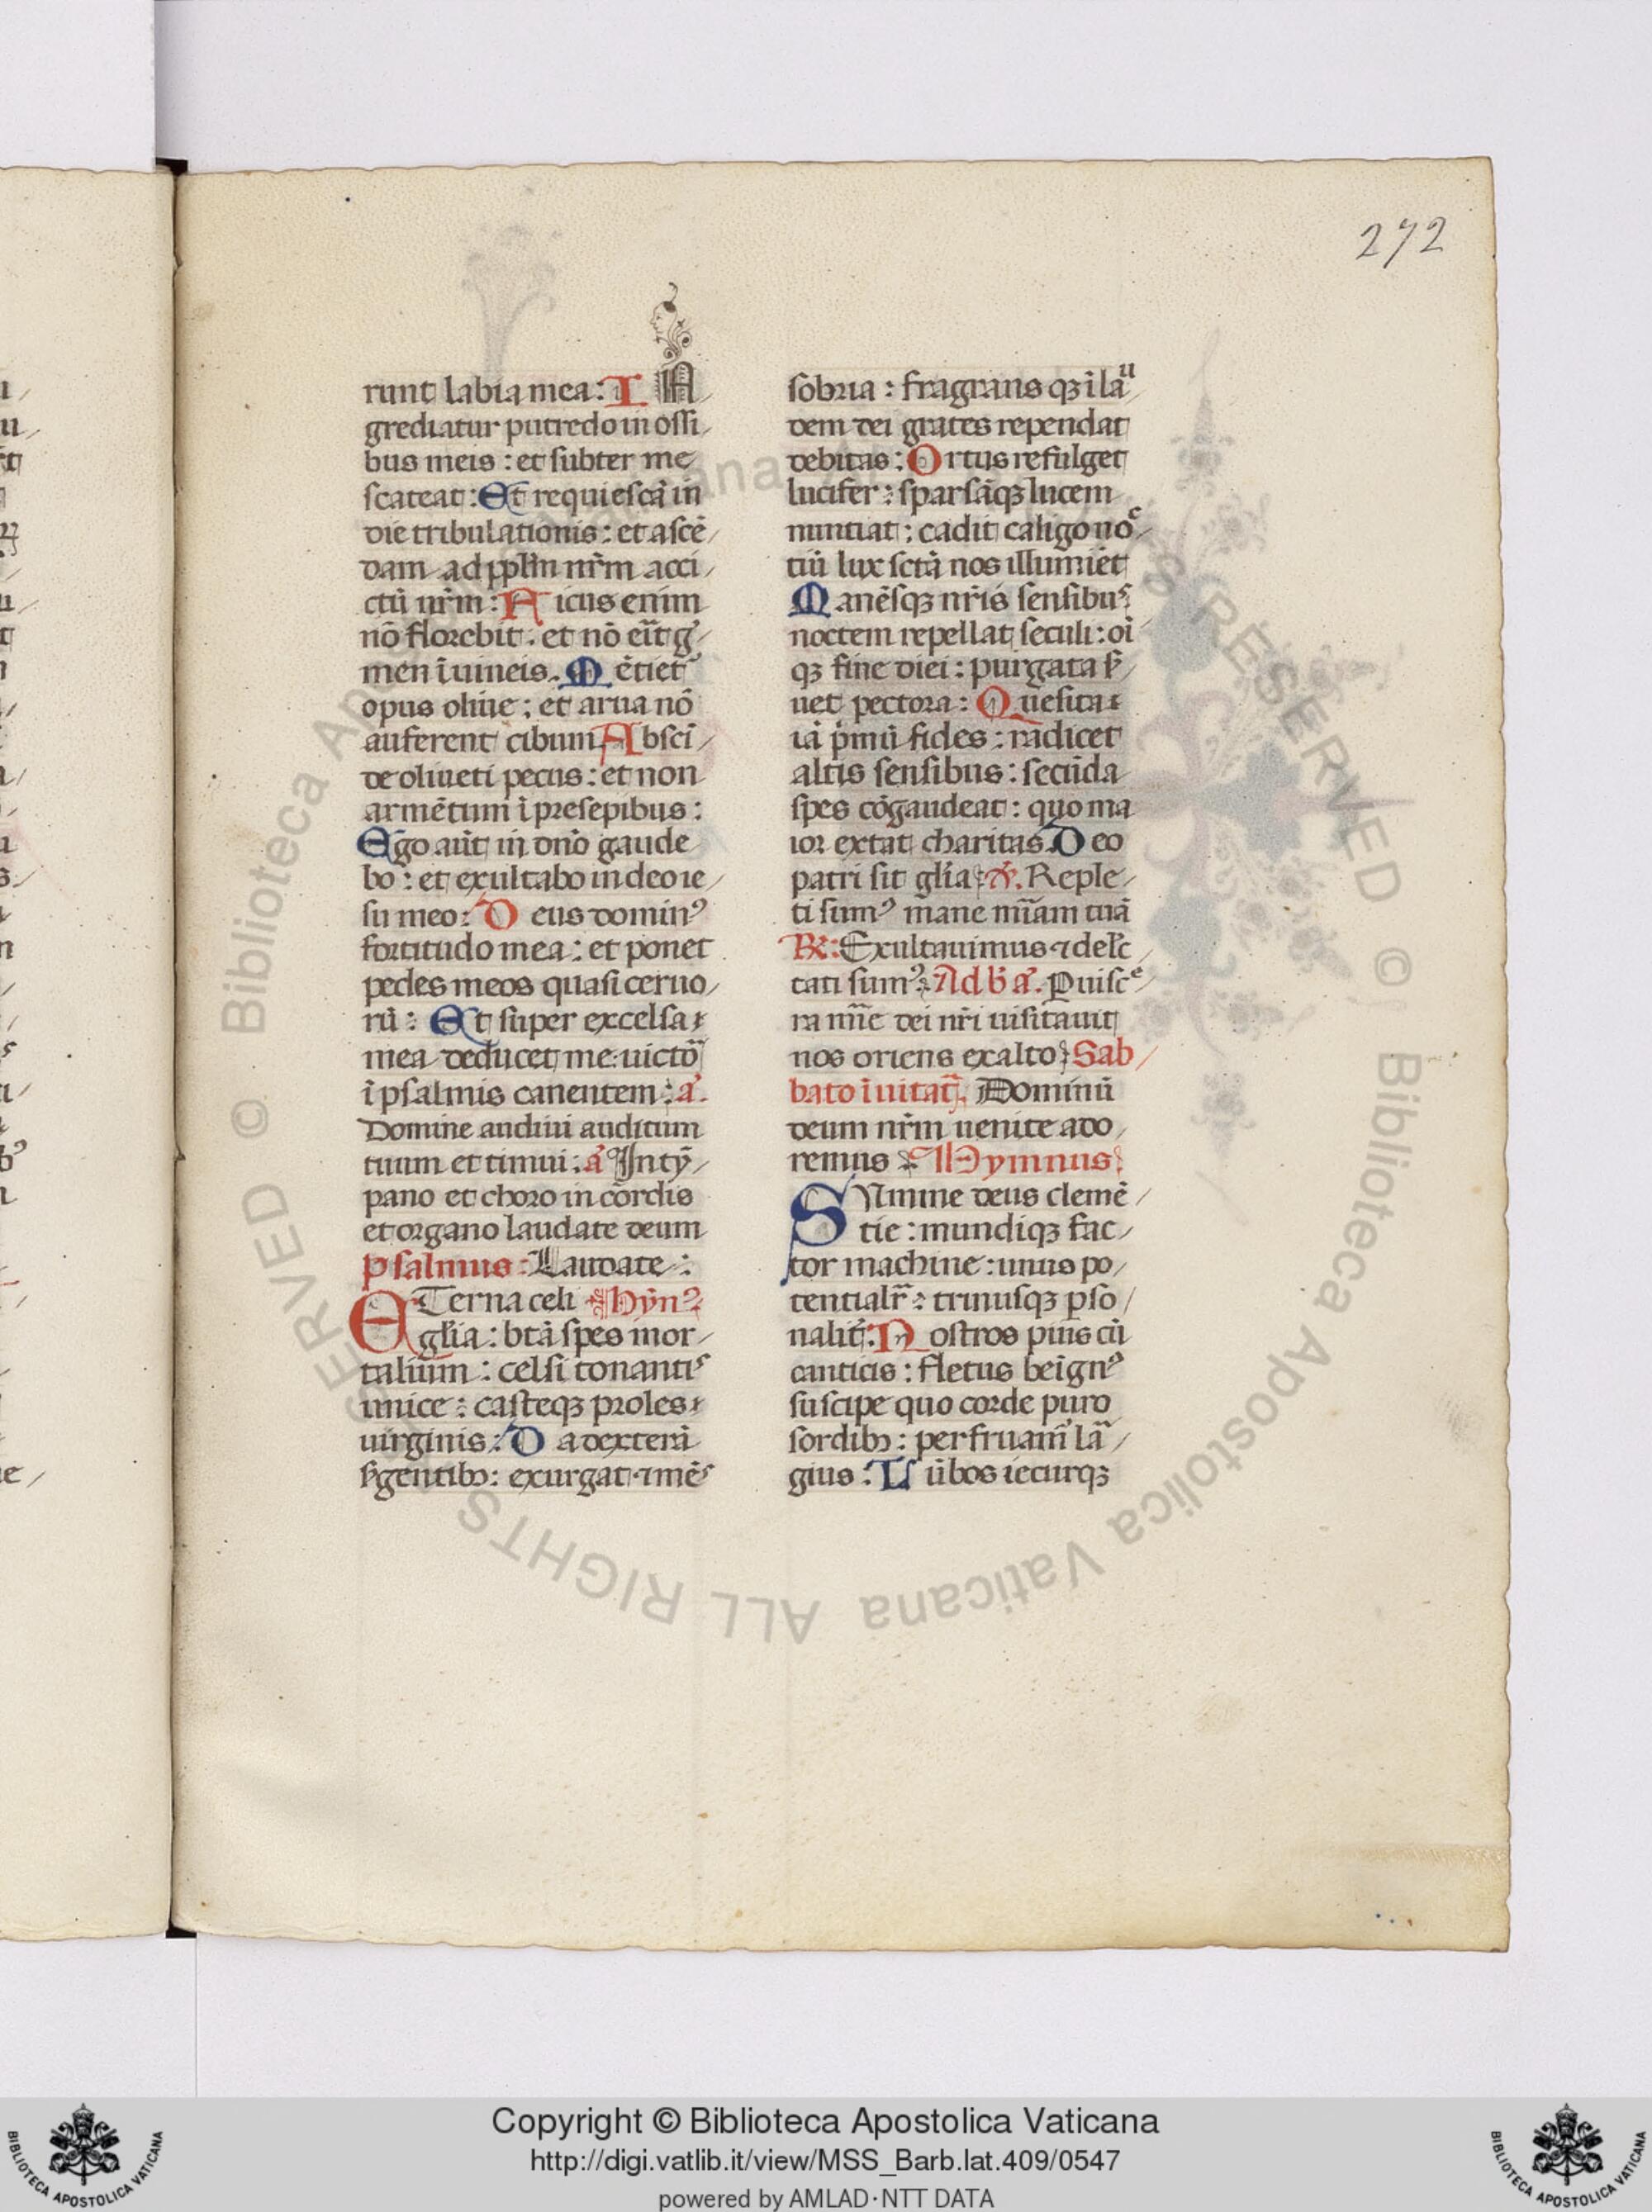 272
runt labia mea: I N
grediatur putredo in ossi
bus meis: et subter me
scateat: Et requiescã in
die tribulationis: et ascẽ
dam ad pplm nr̃m acci
ctũ nr̃m: Ficus enim
nõ florebit: et nõ eĩt g̾
men ĩ uineis. Mẽtiet᷑
opus oliue: et arua nõ
auferent cibum Absci̾
de oliueti pecus: et non
armẽtum ĩ presepibus:
Ego aũt in dño gaude
bo: et exultabo in deo ie
su meo: Deus domin⁹
fortitudo mea: et ponet
pedes meos quasi ceruo
rũ: Et super excelsa
mea deducet me: uictõ
ĩ psalmis canentem: a̾.
Domine audiui auditum
tuum et timui: a̾ In tỹ
pano et choro in cordis
et organo laudate deum
psalmus: Laudate:
ETerna celi hỹn⁹
glĩa: btã spes mor
talium: celsi tonantis
unice: casteqȝ proles
uirginis: Da dexterã
s̾gentibȝ: exurgat ⁊ mẽs
sobria: fragrans qȝ ĩ laᵘ
dem dei grates rependat
debitas: Ortus refulget
lucifer: sparsãqȝ lucem
nuntiat: cadit caligo noᶜ
tiũ lux sctã nos illumiẽt
Manẽsqȝ nr̃is sensibus
noctem repellat seculi: oĩ
qȝ fine diei: purgata s̾
uet pectora: Quesita
iã pͥmũ fides: radicet
altis sensibus: secũda
spes cõgaudeat: quo ma
ior extat charitas Deo
patri sit glĩa: ℣. Reple
ti sum⁹ mane mĩam tuã
℞: Exultauimus ⁊ delc̃
tati sum⁹: Ad b̃ a̾. P uiscᵉ
ra mĩe dei nr̃i uisitauit
nos oriens ex alto: Sab
bato ĩuitat̃. Dominũ
deum nr̃m uenite ado
remus: Hymnus:
SUmme deus clemẽ
tie: mundiqȝ fac
tor machine: unus po
tentialr̃: trinusqȝ pso
nalit̾: Nostros pius cũ
canticis: fletus beĩgn⁹
suscipe quo corde puro
sordibȝ: perfruam̾ lã
gius: Lũbos iecurqȝ
© Biblioteca Apostolica Vaticana ALL RIGHTS RESERVED
Copyright © Biblioteca Apostolica Vaticana
http://digi.vatlib.it/view/MSS_Barb.lat.409/0547
powered by AMLAD·NTT DATA
BIBLIOTECA APOSTOLICA VATICANA
BIBLIOTECA APOSTOLICA VATICANA